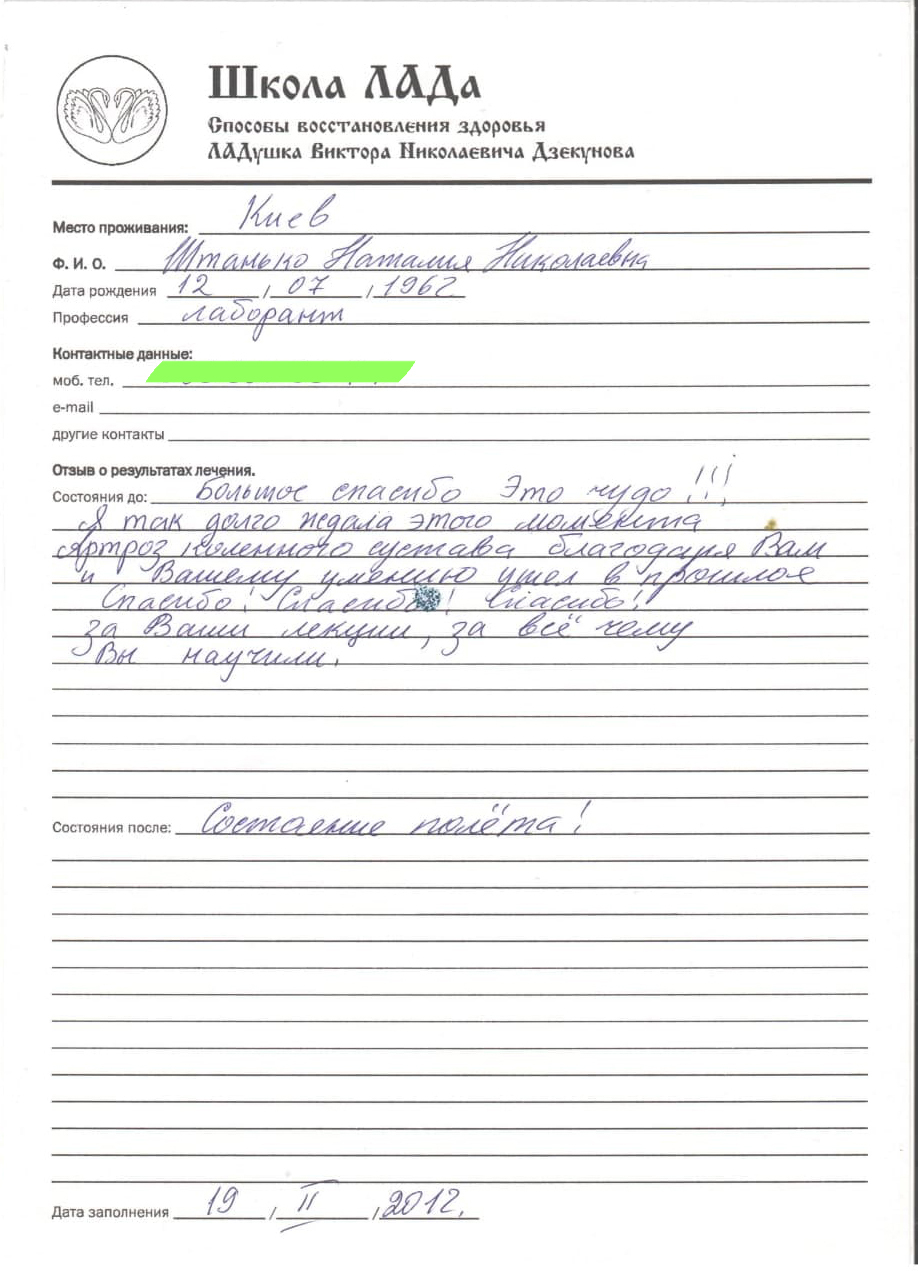 Школа ЛАДа
Способы восстановления здоровья
ЛАДушка Виктора Николаевича Дзекунова
Место проживания: Киев
Ф. И. О. Штанько Наталия Николаевна
Дата рождения 12 , 07 , 1962
Профессия лаборант
Контактные данные:
моб. тел.
e-mail
другие контакты
Отзыв о результатах лечения.
Состояния до: Большое спасибо Это чудо !!!
Я так долго ждала этого момента
Артроз коленного сустава благодаря Вам
и Вашему умению ушел в прошлое
Спасибо! Спасибо! Спасибо!
за Ваши лекции, за всё чему
Вы научили.
Состояния после: Состаение полёта!
Дата заполнения 19 , II , 2012.